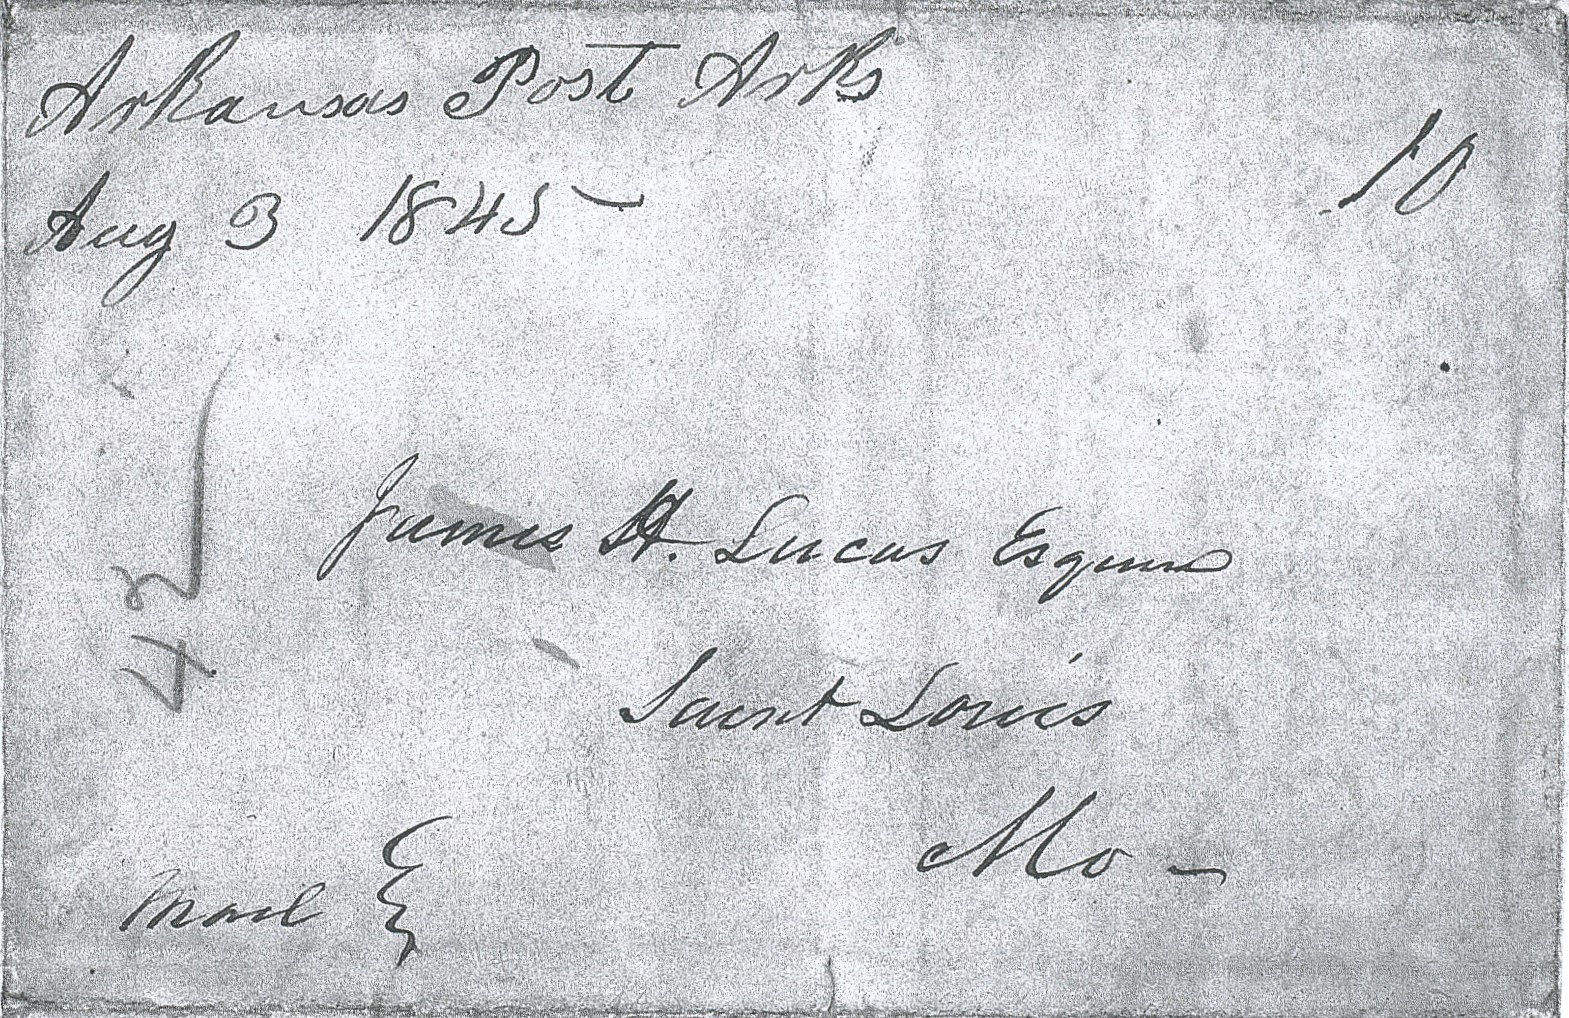 Arkansas Post Arks
10
Aug 3 1845
42
James H. Lucas Esquire
Saint Louis
Mo -
Mail